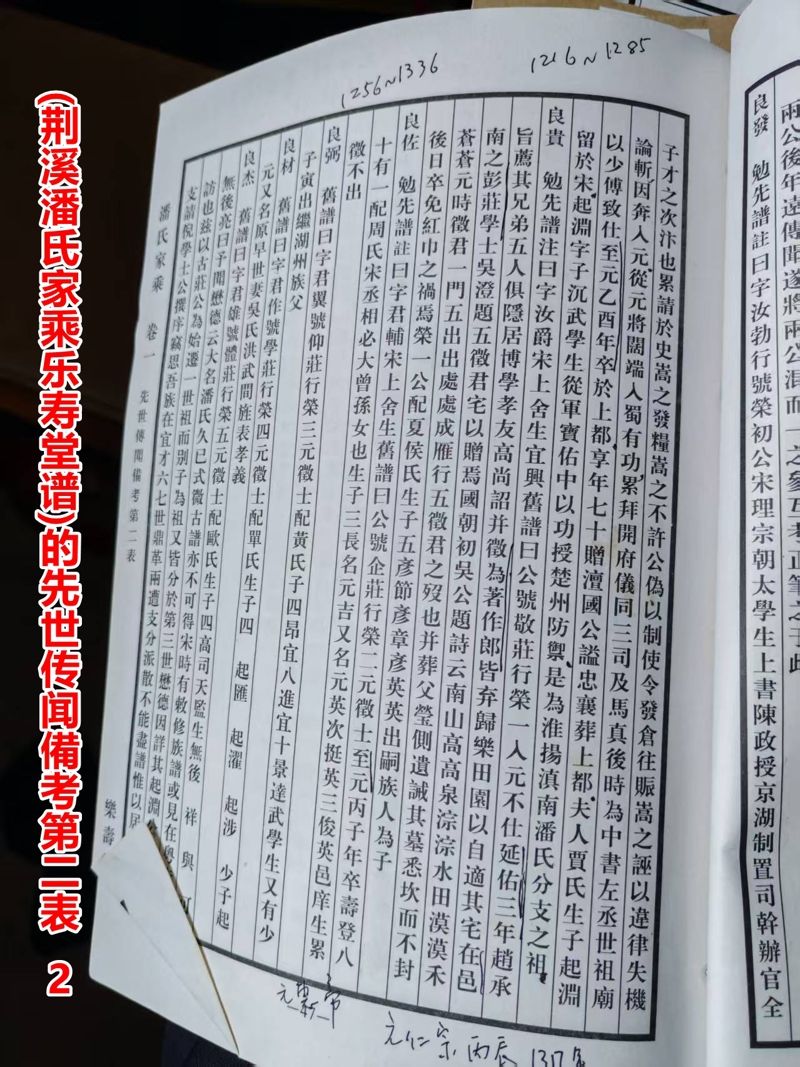 (荆溪潘氏家乘乐寿堂谱)的先世传闻備考第二表 2
1216~1285
1256~1336
兩公後年遠傳聞遂將兩公混而一之參互考正筆之于此
良發 勉先譜註曰字汝勃行號榮初公宋理宗朝太學生上書陳政授京湖制置司幹辦官全
子才之次汴也累請於史嵩之發糧嵩之不許公偽以制使令發倉往賑嵩之誣以違律失機
論斬因奔入元從元將闊端入蜀有功累拜開府儀同三司及馬真後時為中書左丞世祖廟
以少傅致仕至元乙酉年卒於上都享年七十贈澶國公謚忠襄葬上都夫人賈氏生子起淵
留於宋起淵字子沉武學生從軍寶佑中以功授楚州防禦是為淮揚滇南潘氏分支之祖
良貴 勉先譜注曰字汝爵宋上舍生宜興舊譜曰公號敬莊行榮一入元不仕延佑三年趙承
旨薦其兄弟五人俱隱居博學孝友高尚詔并徵為著作郎皆弃歸樂田園以自適其宅在邑
南之彭莊學士吳澄題五徵君宅以贈焉國朝初吳公題詩云南山高高泉淙淙水田漠漠禾
蒼蒼元時徵君一門五出出處處成雁行五徵君之歿也并葬父瑩側遺誡其墓悉坎而不封
後日卒免紅巾之禍焉榮一公配夏侯氏生子五彥節彥章彥英英出嗣族人為子
良佐 勉先譜註曰字君輔宋上舍生舊譜曰公號企莊行榮二元徵士至元丙子年卒壽登八
十有一配周氏宋丞相必大曾孫女也生子三長名元吉又名元英次挺英三俊英邑庠生累
徵不出
良弼 舊譜曰字君翼號仰莊行榮三元徵士配黃氏子四昂宜八進宜十景達武學生又有少
子寅出繼湖州族父
良材 舊譜曰字君作號學莊行榮四元徵士配單氏生子四 起匯 起濯 起涉 少子起
元又名原早世妻吳氏洪武間旌表孝義
良杰 舊譜曰字君雄號體莊行榮五元徵士配歐氏生子四高司天監生無後 祥 與
無後亮曰予聞懋德云大名潘氏久已式微古譜亦不可得宋時有敕修族譜或見在
訪也兹以古莊公為始遷一世祖而別子為祖又皆分於第三世懋德因詳其起淵
支請倪學士公撰序竊思吾族在宜才六七世鼎革兩遭支分派散不能盡譜惟以居
潘氏家乘 卷一 先世傳聞備考第二表
樂壽
元仁宗丙辰